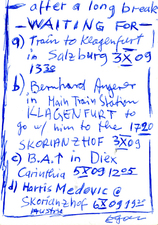 - after a long break
- WAITING FOR -
a) Train to Klagenfurt
in Salzburg 3X09
1330
b) Bernhard Angerer
in Main Train Station
KLAGENFURT to
go w/ him to the 1720
SKORIANZHOF 3X09
c) B.A.↑ in Diex
Carinthia 5X09 1205
d) Harris Medovic @
Skorianzhof 6X09 1925
Austria